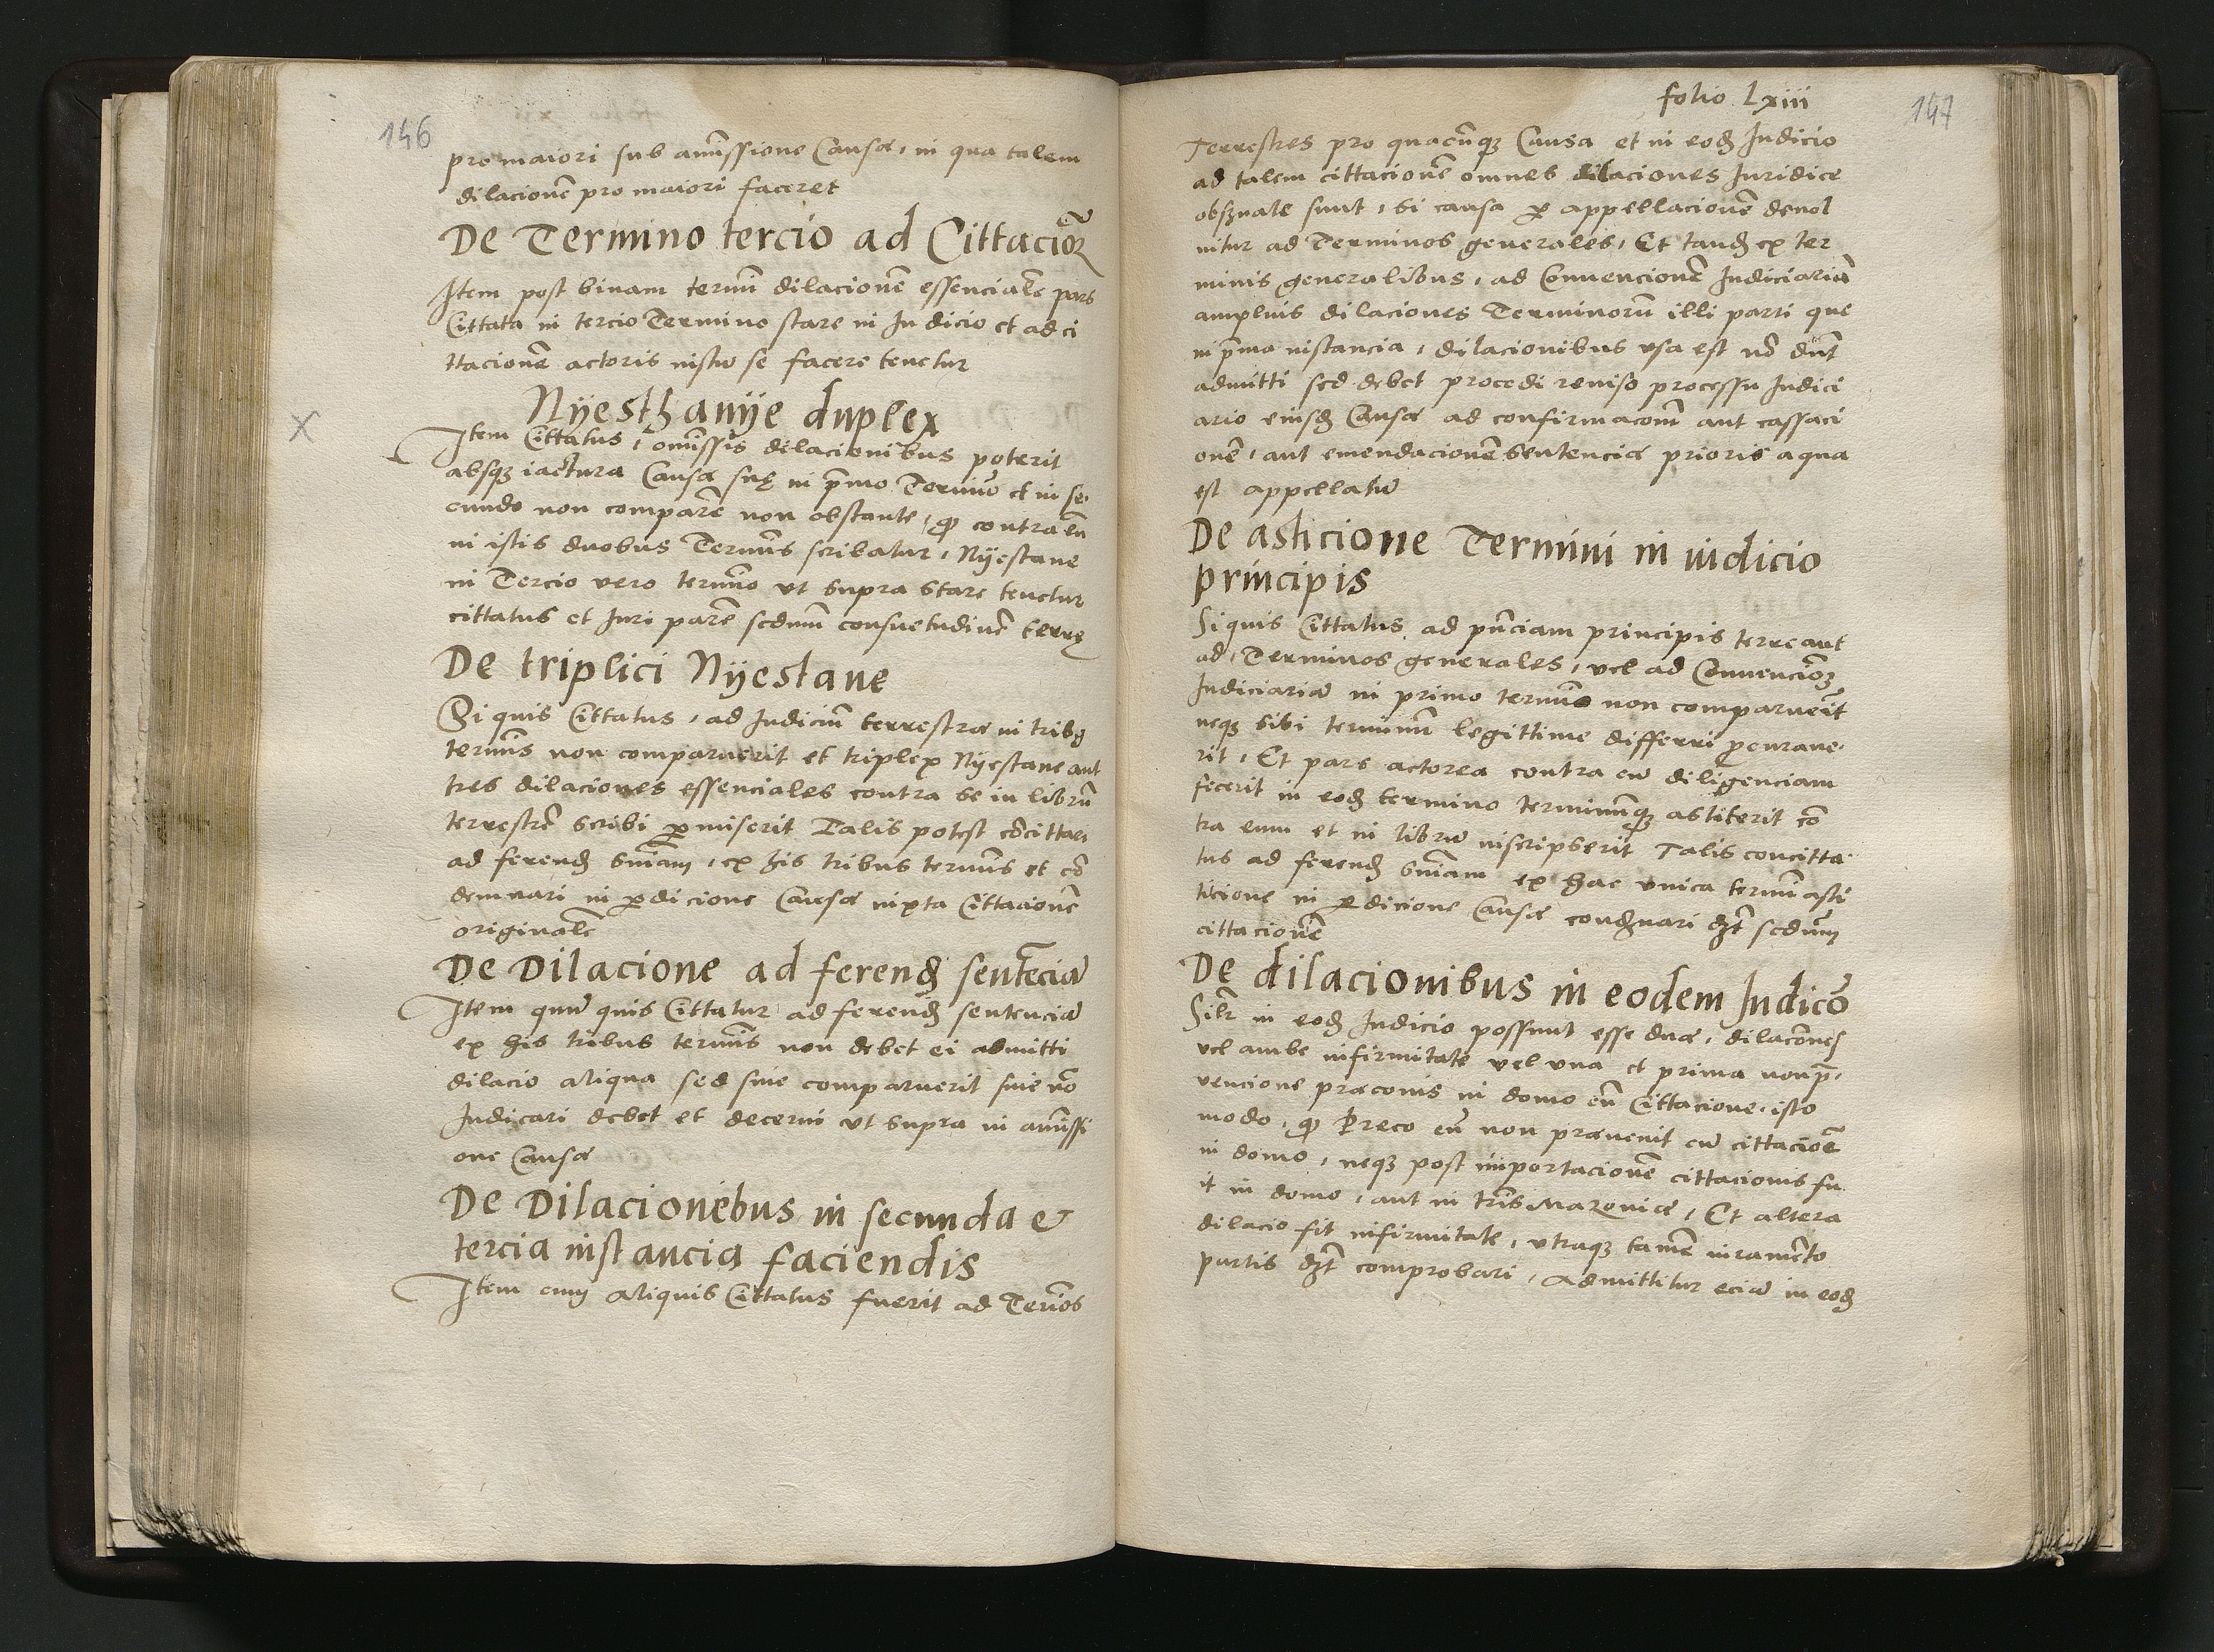 146
pro maiori sub amīssione Causæ, in qua talem
dilacionē pro maiori faceret
De Termino tercio ad Cittacionē
Item post binam termī dilacionē essencialē pars
Cittata in tercio Termino stare in Iudicio et ad ci
ttacionē actoris iustū se facere tenetur
Nÿesthanÿe duplex
Item Cittatus, omīssis dilacionibus poterit
absqꝫ iactura Causæ suę in p̄mo Termīo et in se
cundo non comparē non obstante, qꝫ contra eū
in istis duobus Termīs scribatur, Nÿestane
in Tercio vero termīo vt supra stare tenetur
cittatus et Iuri parē scdum̄ consuetudinē terrę
x
De triplici Nÿestane
Si quis Cittatus, ad Iudiciū terrestræ in tribꝫ
termīs non comparuerit et triplex Nÿestane aut
tres dilaciones essenciales contra se in librū
terrestrē scribi ꝑmiserit Talis potest cōcittari
ad ferendꝫ sn̄iam, ex his tribus termīs et cō
demnari in ꝑdicione Causæ iuxta Cittacionē
originalē
De Dilacione ad ferendꝫ sentēciā
Item quū quis Cittatur ad ferendꝫ sentenciā
ex his tribus termīs non debet ei admitti
dilacio aliqua sed siue comparuerit siue nō
Iudicari debet et decerni vt supra in amīssi
one Causæ
De Dilacionebus in secunda &
tercia instancia faciendis
Item cum aliquis Cittatus fuerit ad Term̄os
folio Lxiii
147
Terrestres pro quacūqꝫ Causa et in eodꝫ Iudicio
ad talem cittacionē omnes dilaciones Iuridice
obsꝫuate sunt, si causa ꝑ appellacionē deuol
uitur ad Terminos generales, Et tandꝫ ex ter
minis generalibus, ad Conuencionē Iudiciariā
amplius dilaciones Terminorū illi parti que
in p̄ma instancia, dilacionibus vsa est nō dn̄t
admitti sed debet procedi reuiso processu Iudici
ario eiusdꝫ Causæ ad confirmacōm aut cassaci
onē, aut emendacionē sentenciæ prioris a qua
est appellatū
De asticione Termini in iudicio
principis
Si quis Cittatus ad pn̄ciam principis terre aut
ad Terminos generales, vel ad Conuencionꝫ
Iudiciariā in primo termīo non comparuerit
neqꝫ sibi terminū legittime differri ꝓcuraue
rit, Et pars actorea contra eū diligenciam
fecerit in eodꝫ termino terminūqꝫ astiterit cō
tra eum et in librū inscripserit Talis concitta
tus ad ferendꝫ sn̄iam ex hac vnica termī asti
ticione in ꝑdicione Causæ condꝫnari dꝫt scdum̄
cittacionē
De dilacionibus in eodem Iudicō
Silr̄ in eodꝫ Iudicio possunt esse duæ, dilacōnes
vel ambe infirmitate vel vna et prima non p̄
uencione præconis in domo cū Cittacione, isto
modo, qꝫ Preco eū non præuenit cū cittacionē
in domo, neqꝫ post importacionē cittacionis fu
it in domo, aut in tr̄is Mazouiæ, Et altera
dilacio fit infirmitate, vtraqꝫ tamē iuramēto
partis dꝫt comprobari, Admittitur eciā in eodꝫ